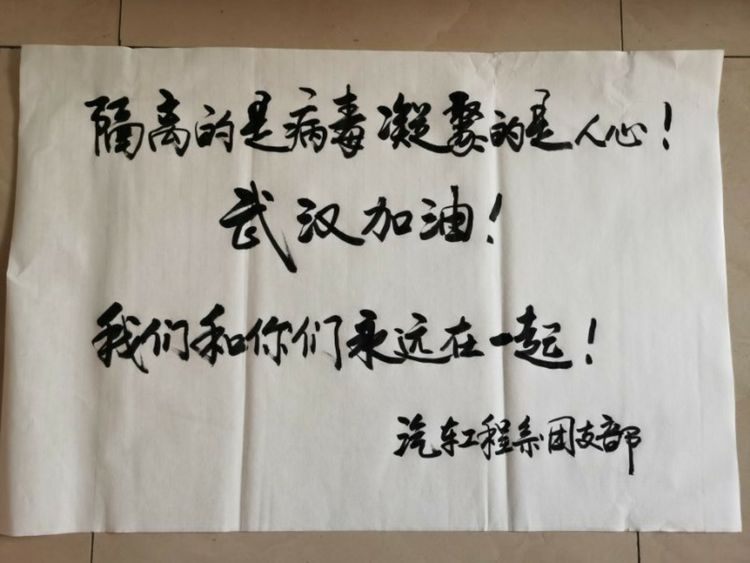 隔离的是病毒凝聚的是人心！
武汉加油！
我们和你们永远在一起！
汽车工程系团支部